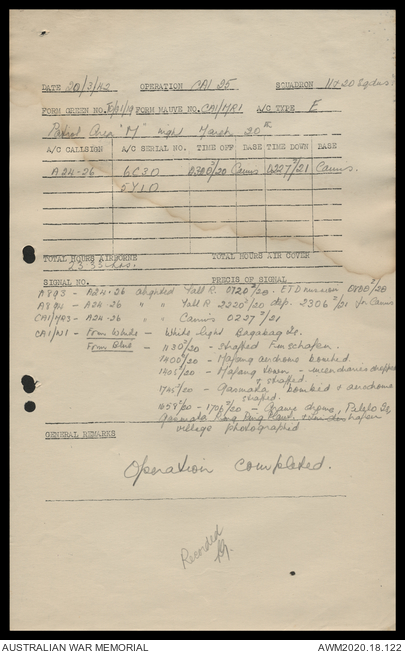 DATE 20/3/42 OPERATION CAI 25 SQUADRON 11 & 20 Sqdns
FORM GREEN NO. FORM MAUVE NO. CAI/MR1 A/C TYPE E
Patrol Area "M" night March 20
A/C CALLSIGN A/C SERIAL NO. TIME OFF BASE TIME DOWN BASE
A24-26 6C3D /20 Cairns 0227/21 Cairns.
TOTAL HOURS AIRBORNE TOTAL HOURS AIR COVER
SIGNAL NO. PRECIS OF SIGNAL
A893 - A24-26 alighted Yall R. 0720/20. ETD mission 0400/20
A24-26 " " Yall R 2220/20 dep. 2306 for Cairns
CAI/MR3 - A24-26 " " Cairns 0227/21
CAI/W1 - From White - White light Bagabag Is.
From Blue - 1130/20 - strafed Finschafen.
1400/20 - Malang aerodrome bombed.
Malang town - incendiaries dropped
& strafed.
1745/20 - Gasmata bombed & aerodrome
strafed.
- 1706/20 - drome, Is
Gasmata
village photographed
GENERAL REMARKS
Operation Completed.
Recorded
AUSTRALIAN WAR MEMORIAL AWM2020.18.122